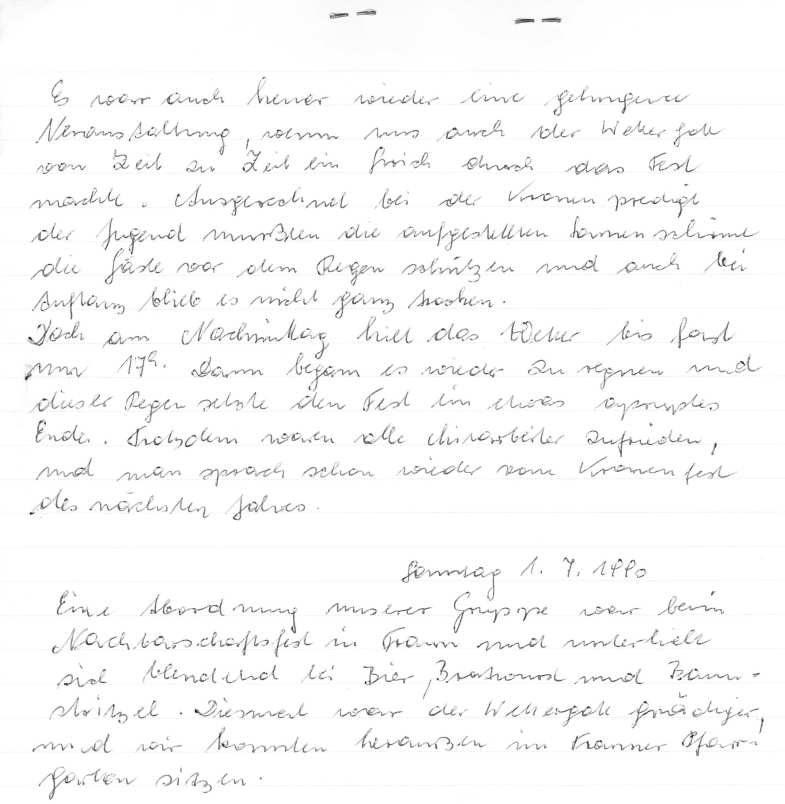 Es war auch heuer wieder eine gelungene
Veranstaltung, wenn uns auch der Wettergott
von Zeit zu Zeit ein Strich durch das Fest
machte. Ausgerechnet bei der Kronenpredigt
der Jugend mußten die aufgestellten Sonnenschirme
die Gäste vor dem Regen schützen und auch bei
Auftanz blieb es nicht ganz trocken.
Doch am Nachmittag hielt das Wetter bis fast
um 17h. Dann begann es wieder zu regnen und
dieser Regen setzte den Fest ein etwas apruptes
Ende. Trotzdem waren alle Mitarbeiter zufrieden,
und man sprach schon wieder vom Kronenfest
des nächsten Jahres.
Sonntag 1. 7. 1990
Eine Abordnung unserer Gruppe war beim
Nachbarschaftsfest in Traun und unterhielt
sich blendend bei Bier, Bratwurst und Baum-
stritzel. Diesmal war der Wettergott gnädiger,
und wir konnten heraußen im Trauner Pfarr-
garten sitzen.